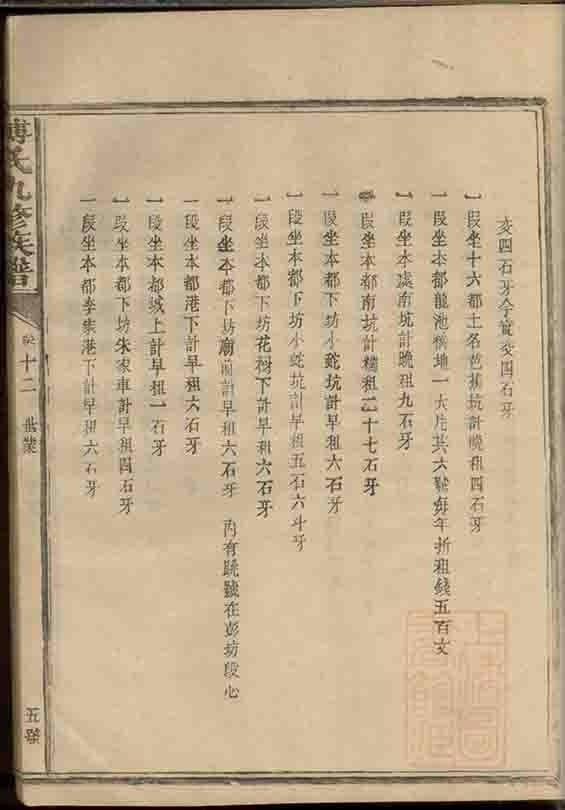 交四石牙今實交四石牙
一段坐十六都土名芭蕉坑計晚租四石牙
一段坐本都龍池 地一大片共六號每年折租錢五百文
一段坐本處南坑計晚租九石牙
一段坐本都南坑計 租二十七石牙
一段坐本都下坊小蛇坑計早租六石牙
一段坐本都下坊小蛇坑計早租五石六斗牙
一段坐本都下坊花樹下計早租六石牙
一段坐本都下坊廟前計早租六石牙 內有 號在彭坊段心
一段坐本都港下計早租六石牙
一段坐本都城上計早租一石牙
一段坐本都下坊朱家車計早租四石牙
一段坐本都李家港下計早租六石牙
傅氏九修族譜
十二 世業
五
上海圖書館藏